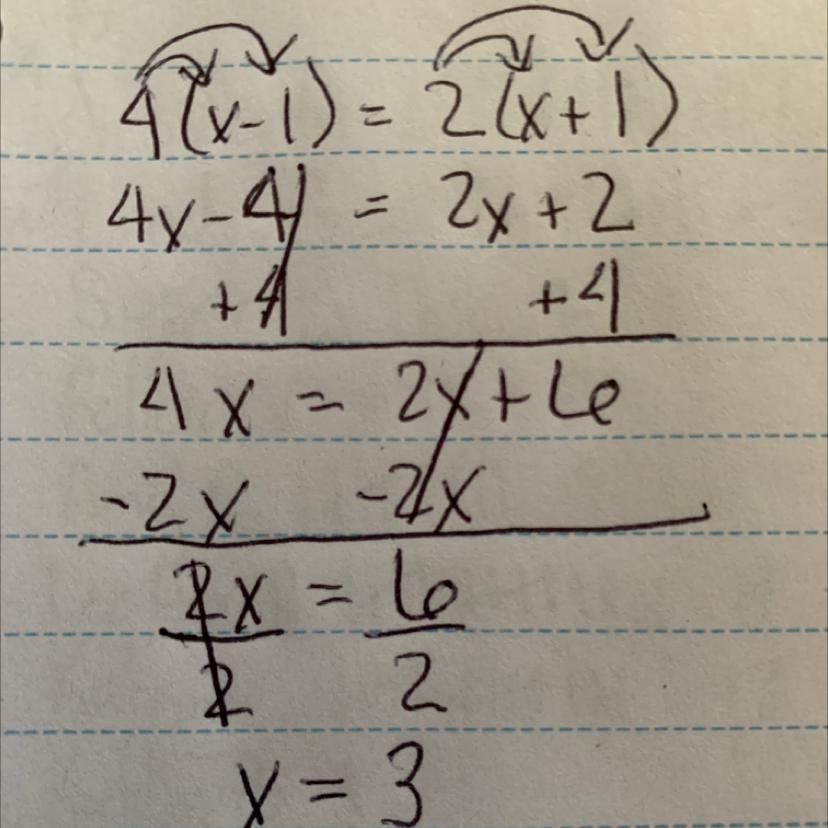 4(x-1) = 2(x+1)
4x-4 = 2x+2
+4 +4
4x = 2x+6
-2x -2x
2x = 6
2 2
x = 3